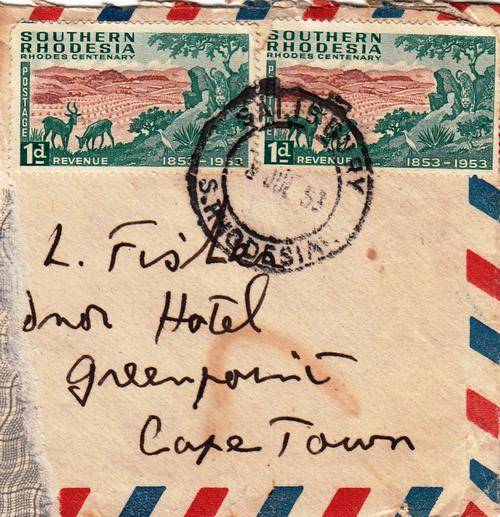 SOUTHERN
RHODESIA
RHODES CENTENARY
POSTAGE
1d REVENUE 1853-1953
SOUTHERN
RHODESIA
RHODES CENTENARY
1d REVENUE 1853-1953
SALISBURY
JUL 53
S. RHODESIA
L.
dnor Hotel
Greenpoint
Cape Town